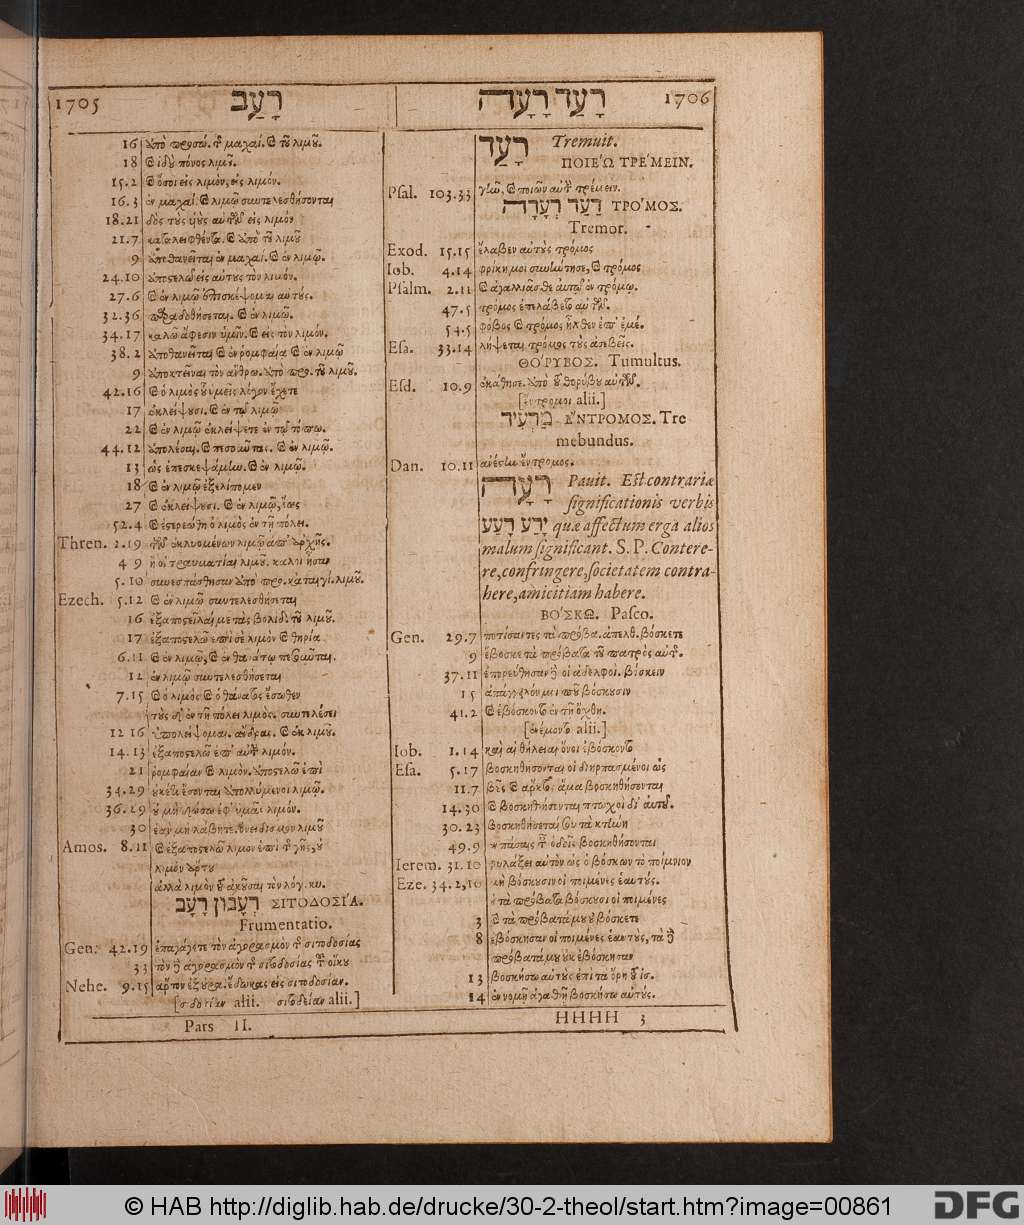 1705 רָעַב
16 ὑπὸ
18 πόνος λιμοῦ.
15.2 ὅσοι εἰς λιμὸν, εἰς λιμόν.
16.3 λιμῷ συντελεσθήσονται
18.21 εἰς λιμόν
21.7 λιμοῦ
9 λιμῷ.
24.10 εἰς αὐτοὺς τὸν λιμόν.
27.6 ἐν λιμῷ ἐπισκέψομαι αὐτούς.
32.36 ἐν λιμῷ.
34.17 καλῶ ἄφεσιν ὑμῖν. εἰς τὸν λιμόν.
38.2 ἐν ῥομφαίᾳ ἐν λιμῷ
9 τοῦ λιμοῦ.
42.16 ὁ λιμὸς οὗ ὑμεῖς λόγον ἔχετε
17 ἐν τῷ λιμῷ
22 ἐν λιμῷ ἐκλείψετε ἐν τῷ τόπῳ.
44.12 ἐν λιμῷ.
13 ὡς ἐπεσκεψάμην. ἐν λιμῷ.
18 ἐν λιμῷ ἐξελίπομεν
27 ἐκλείψουσι. ἐν λιμῷ, ἕως
52.4 ἐστερεώθη ὁ λιμὸς ἐν τῇ πόλει.
Thren. 2.19 τῶν ἐκλυομένων λιμῷ ἐπ' ἀρχῆς.
4 9 ἢ οἱ τραυματίαι λιμοῦ. καλοὶ ἦσαν
5.10 συνεσπάσθησαν λιμοῦ.
Ezech. 5.12 ἐν λιμῷ συντελεσθήσεται
16 ἐξαποστεῖλαί με τὰς βολίδ. τοῦ λιμοῦ.
17 ἐξαποστελῶ ἐπὶ σὲ λιμὸν θηρία
6.11 ἐν λιμῷ, ἐν θανάτῳ πεσοῦνται.
12 ἐν λιμῷ συντελεσθήσεται
7.15 ὁ λιμὸς ὁ θάνατος ἔσωθεν
τοὺς δ' ἐν τῇ πόλει λιμὸς. συντελέσει
12 16 ὑπολείψομαι. ἐκ λιμοῦ.
14.13 ἐξαποστελῶ ἐπ' αὐτὴν λιμόν.
21 ῥομφαίαν λιμὸν. ἀποστελῶ ἐπὶ
34.29 οὐκέτι ἔσονται ἀπολλύμενοι λιμῷ.
36.29 οὐ μὴ δώσω ἐφ' ὑμᾶς λιμόν.
30 ἐὰν μὴ λάβητε. ὀνειδισμὸν λιμοῦ
Amos. 8.11 ἐξαποστελῶ λιμὸν ἐπὶ τ γῆς, οὐ
λιμὸν ἄρτου
ἀλλὰ λιμὸν τοῦ ἀκοῦσαι τὸν λόγ. κυ.
רְעָבוֹן רָעָב ΣΙΤΟΔΟΣΙ'Α.
Frumentatio.
Gen. 42.19 ἀπαγάγετε τὸν ἀγορασμὸν τ σιτοδοσίας
33 τὸν ἀγορασμὸν τ σιτοδοσίας οἴκου
Nehe. 9.15 ἄρτον ἐξ οὐρα. ἔδωκας εἰς σιτοδοσίαν.
[σιδοτίαν alii. σιτοδείαν alii.]
Pars II.
רָעַד רָעָדה 1706
רָעַד Tremuit.
ΠΟΙΕ'Ω ΤΡΕ'ΜΕΙΝ.
Psal. 103.33 ποιῶν αὐτὴν τρέμειν.
רַעַד רְעָדָה ΤΡΟ'ΜΟΣ.
Tremor.
Exod. 15.15 ἔλαβεν αὐτοὺς τρόμος
Iob. 4.14 φρίκη μοι συνήντησε, τρόμος
Psalm. 2.11 ἀγαλλιᾶσθε αὐτῷ ἐν τρόμῳ.
47.5 τρόμος ἐπελάβετο αὐτῶν.
54.5 φόβος τρόμος ἦλθεν ἐπ' ἐμέ.
Esa. 33.14 λήψεται τρόμος τοὺς ἀσεβεῖς.
ΘΟ'ΡΥΒΟΣ. Tumultus.
Esd. 10.9 ἐκάθησε. ἀπὸ θορύβου αὐτῶν.
[ἔντρομοι alii.]
מַרְעִיד ἜΝΤΡΟΜΟΣ. Tre
mebundus.
Dan. 10.11 ἀνέστην ἔντρομος.
רָעָה Pavit. Est contrariæ
significationis verbis
יָדַע רָעַע quæ affectum erga alios
malum significant. S. P. Contere-
re, confringere, societatem contra-
here, amicitiam habere.
ΒΟ'ΣΚΩ. Pasco.
Gen. 29.7 ποτίσαντες τὰ πρόβα. ἀπελθ. βόσκετε
9 ἔβοσκε τὰ πρόβατα τοῦ πατρὸς αὐτ.
37.11 ἐπορεύθησαν οἱ ἀδελφοὶ. βόσκειν
15 ἀπάγγειλόν μοι ποῦ βόσκουσιν
41.2 ἐβόσκοντο ἐν τῇ ὄχθῃ.
[ἐνέμοντο alii.]
Iob. 1.14 καὶ αἱ θήλειαι ὄνοι ἐβόσκοντο
Esa. 5.17 βοσκηθήσονται οἱ διηρπασμένοι ὡς
11.7 βοῦς ἄρκτος ἅμα βοσκηθήσονται
14.30 βοσκηθήσονται πτωχοὶ δι' αὐτοῦ.
30.23 βοσκηθήσεταί σου τὰ κτήνη
49.9 πάσαις ὁδοῖς βοσκηθήσονται
Ierem. 31.10 φυλάξει αὐτὸν ὡς ὁ βόσκων τὸ ποίμνιον
Eze. 34.2,10 μὴ βόσκουσιν οἱ ποιμένες ἑαυτούς.
οὐ τὰ πρόβατα βόσκουσι οἱ ποιμένες
3 τὰ πρόβατά μου οὐ βόσκετε
8 ἐβόσκησαν οἱ ποιμένες ἑαυτοὺς, τὰ
πρόβατά μου οὐκ ἐβόσκησαν
13 βοσκήσω αὐτοὺς ἐπὶ τὰ ὄρη ἰσ.
14 ἐν νομῇ ἀγαθῇ βοσκήσω αὐτούς.
HHHH 3
© HAB http://diglib.hab.de/drucke/30-2-theol/start.htm?image=00861 DFG